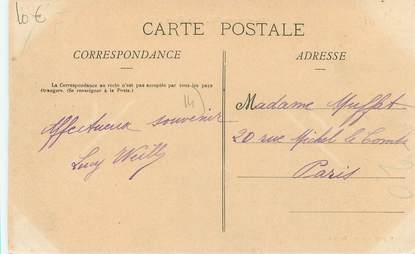 10 €
CARTE POSTALE
CORRESPONDANCE
ADRESSE
La Correspondance au recto n'est pas acceptée par tous les pays
étrangers. (Se renseigner à la Poste.)
Affectueux souvenir
Lucy Weill
Madame Muffat
20 rue Michel le Comte
Paris